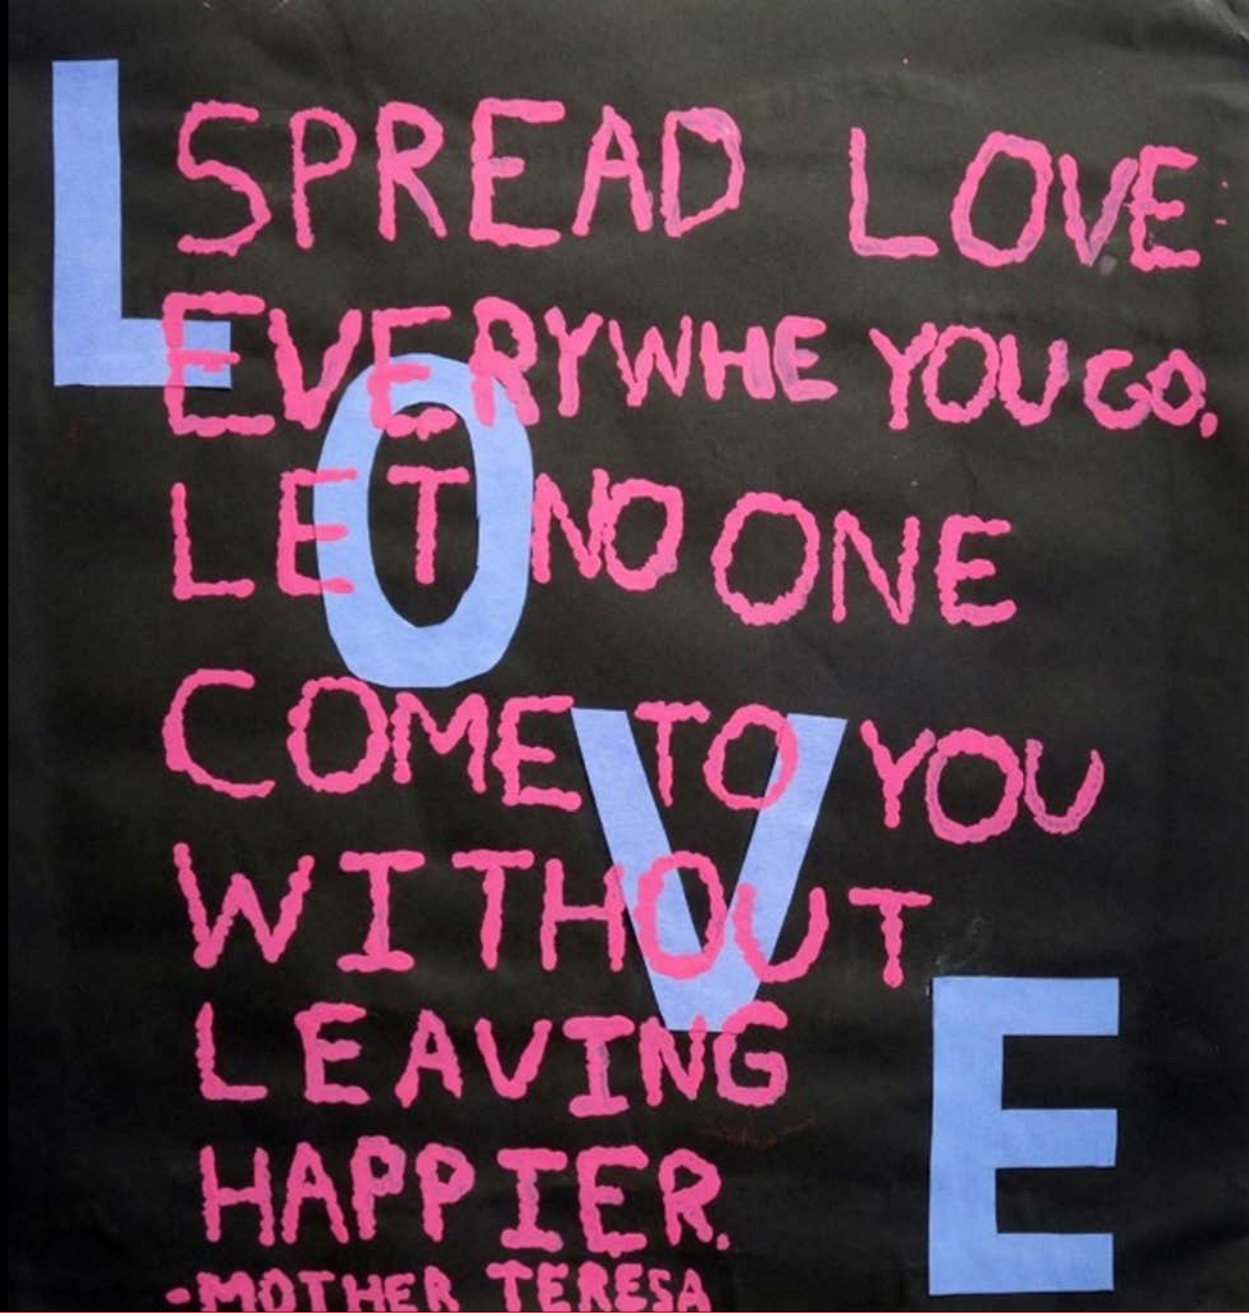 LOVE
SPREAD LOVE
EVERYWHE YOU GO.
LET NO ONE
COME TO YOU
WITHOUT
LEAVING
HAPPIER.
-MOTHER TERESA